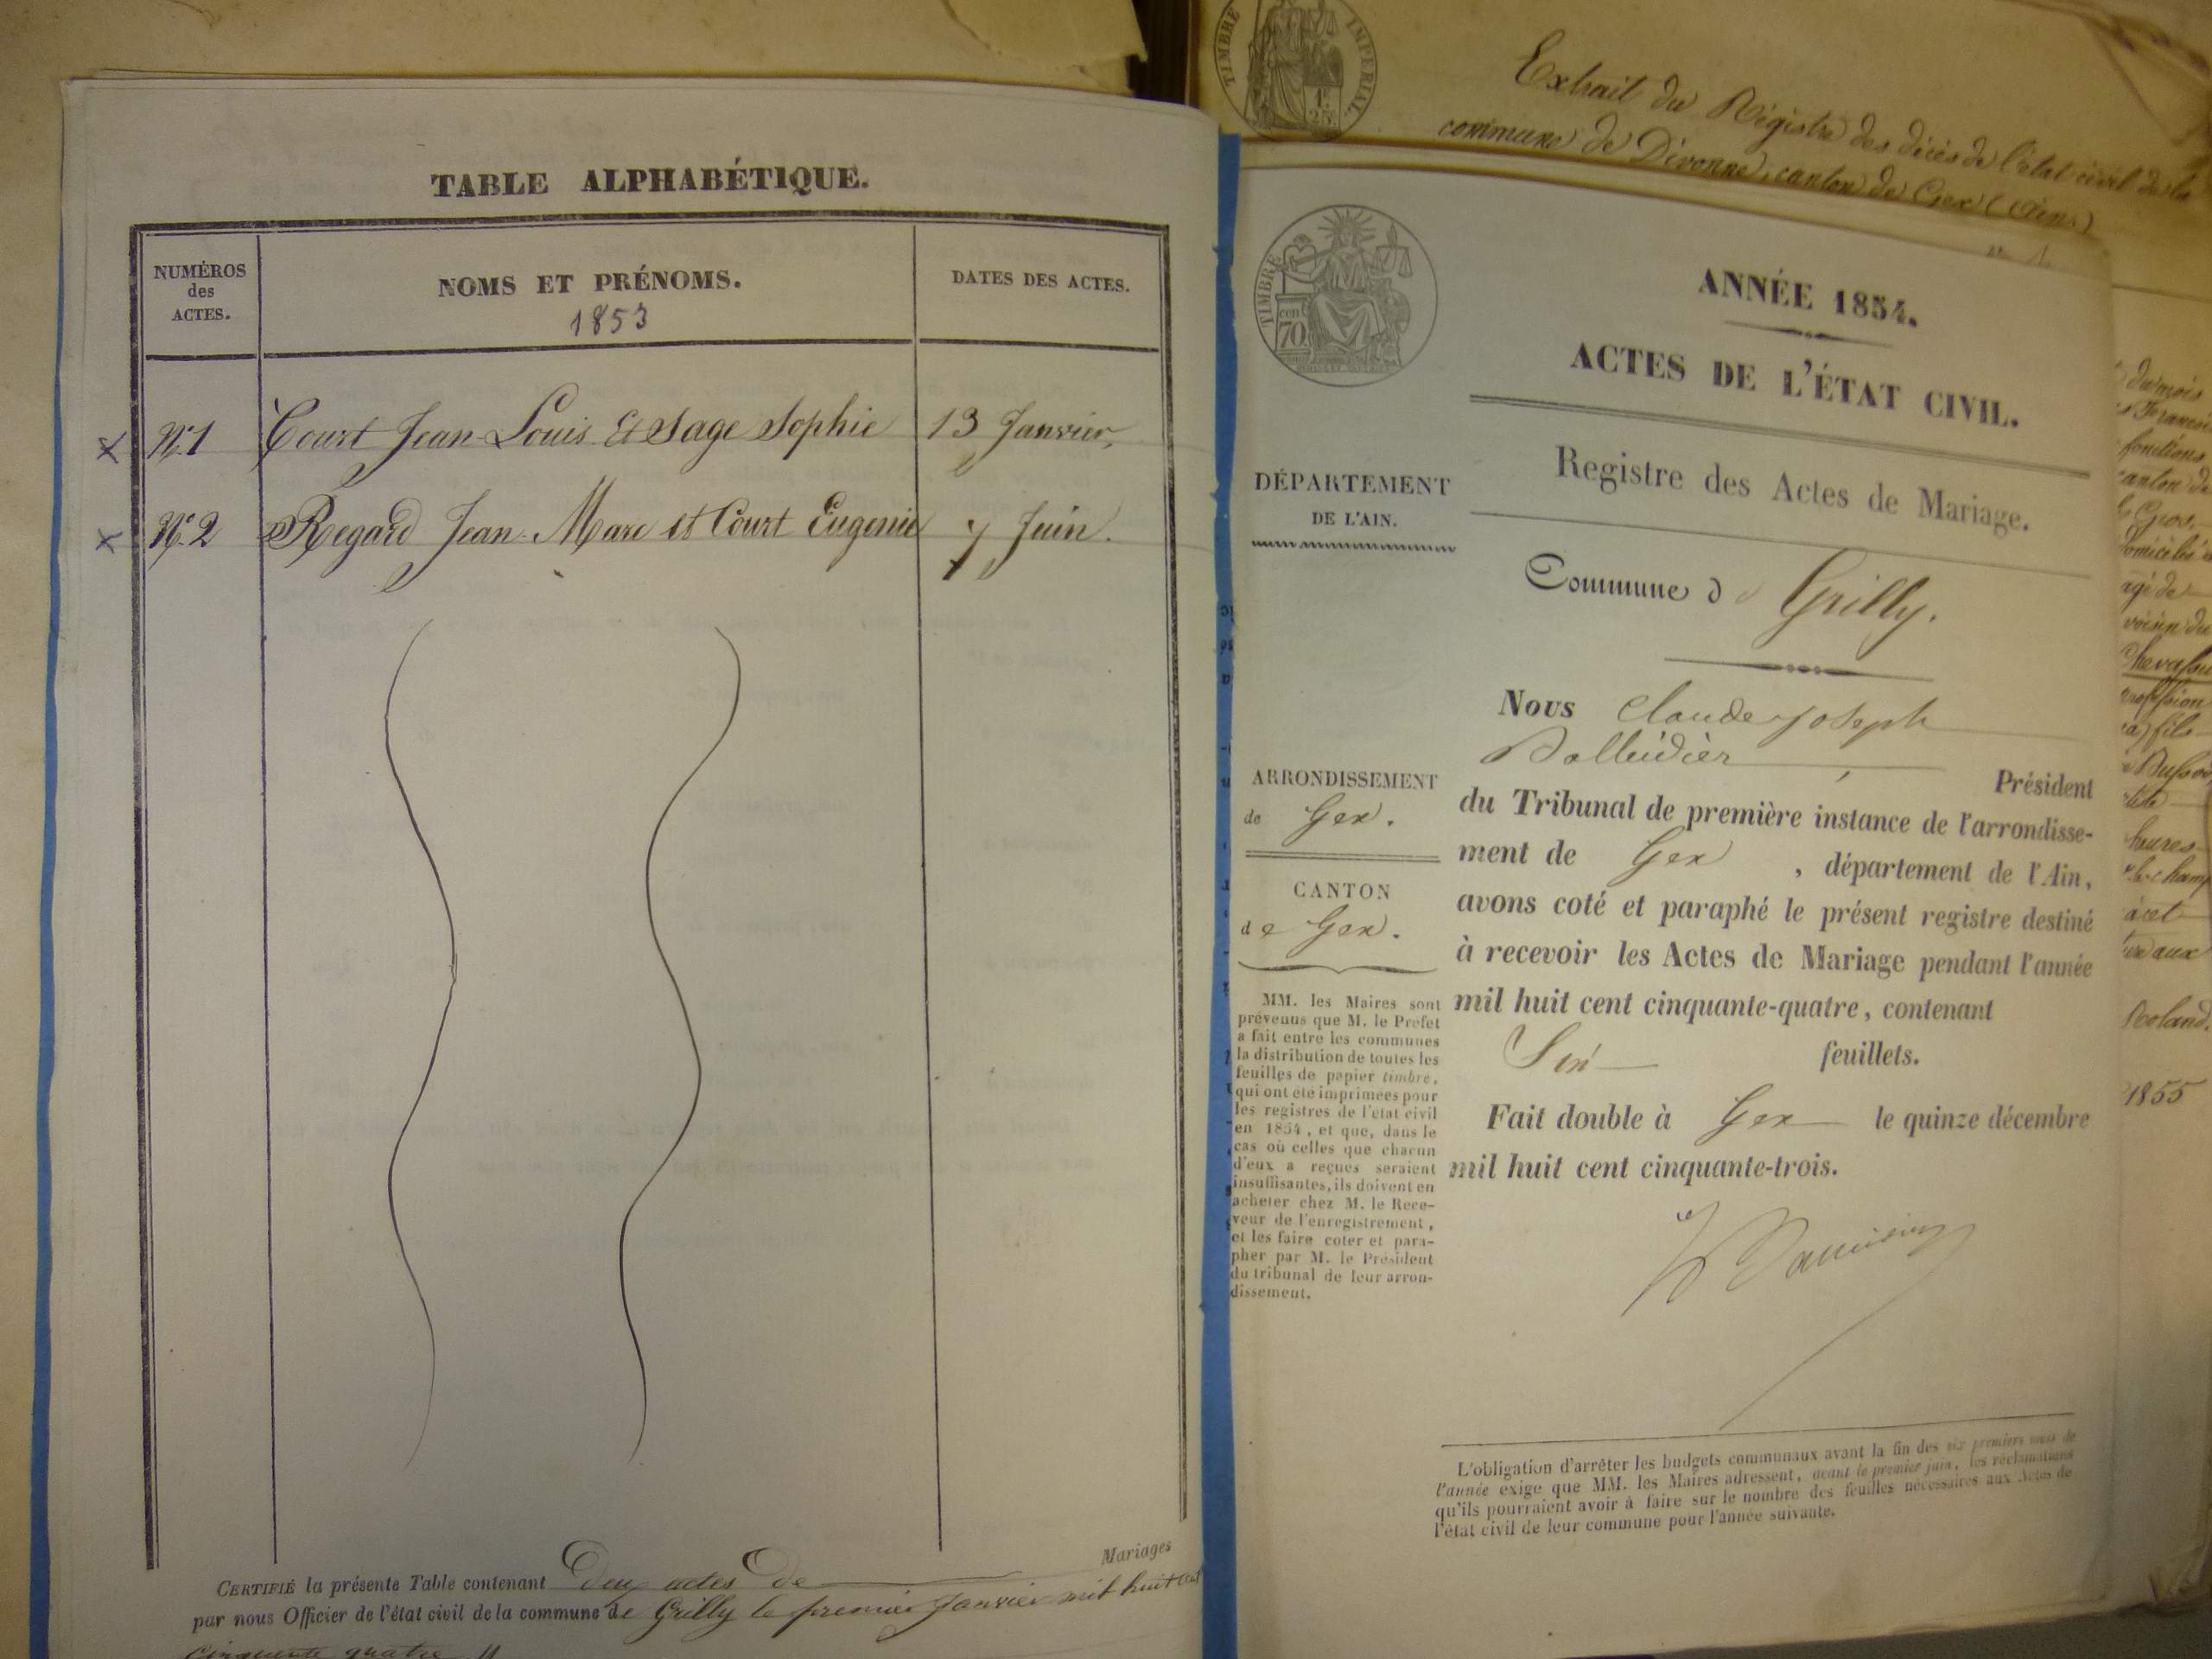 TABLE ALPHABÉTIQUE.
NUMÉROS
des
ACTES.
NOMS ET PRÉNOMS.
1853
DATES DES ACTES.
x No 1 Court Jean Louis Et Sage Sophie 13 Janvier.
x No 2 Regard Jean-Marc et Court Eugenie 7 Juin.
Mariages
CERTIFIÉ la présente Table contenant deux actes de
par nous Officier de l'état civil de la commune de Grilly le premier Janvier mil huit cent
cinquante quatre
TIMBRE IMPERIAL
1f
25c
Extrait du Régistre des décès de l'état civil de la
commune de Divonne, canton de Gex (Ain)
TIMBRE
cent
70
ANNÉE 1854.
ACTES DE L'ÉTAT CIVIL.
Registre des Actes de Mariage.
Commune d Grilly.
DÉPARTEMENT
DE L'AIN.
ARRONDISSEMENT
de Gex.
CANTON
de Gex.
MM. les Maires sont
prévenus que M. le Préfet
a fait entre les communes
la distribution de toutes les
feuilles de papier timbre,
qui ont été imprimées pour
les registres de l'état civil
en 1854, et que, dans le
cas où celles que chacun
d'eux a reçues seraient
insuffisantes, ils doivent en
acheter chez M. le Rece-
veur de l'enregistrement,
et les faire coter et para-
pher par M. le Président
du tribunal de leur arron-
dissement.
Nous Claude Joseph
Président
du Tribunal de première instance de l'arrondisse-
ment de Gex, département de l'Ain,
avons coté et paraphé le présent registre destiné
à recevoir les Actes de Mariage pendant l'année
mil huit cent cinquante-quatre, contenant
feuillets.
Fait double à Gex le quinze décembre
mil huit cent cinquante-trois.
L'obligation d'arrêter les budgets communaux avant la fin des six premiers mois de
l'année exige que MM. les Maires adressent, avant le premier juin, les réclamations
qu'ils pourraient avoir à faire sur le nombre des feuilles nécessaires aux Actes de
l'état civil de leur commune pour l'année suivante.
du mois
fonctions
canton de
agé de
voisin du
fils
heures
à cet
aux
Roland.
1855